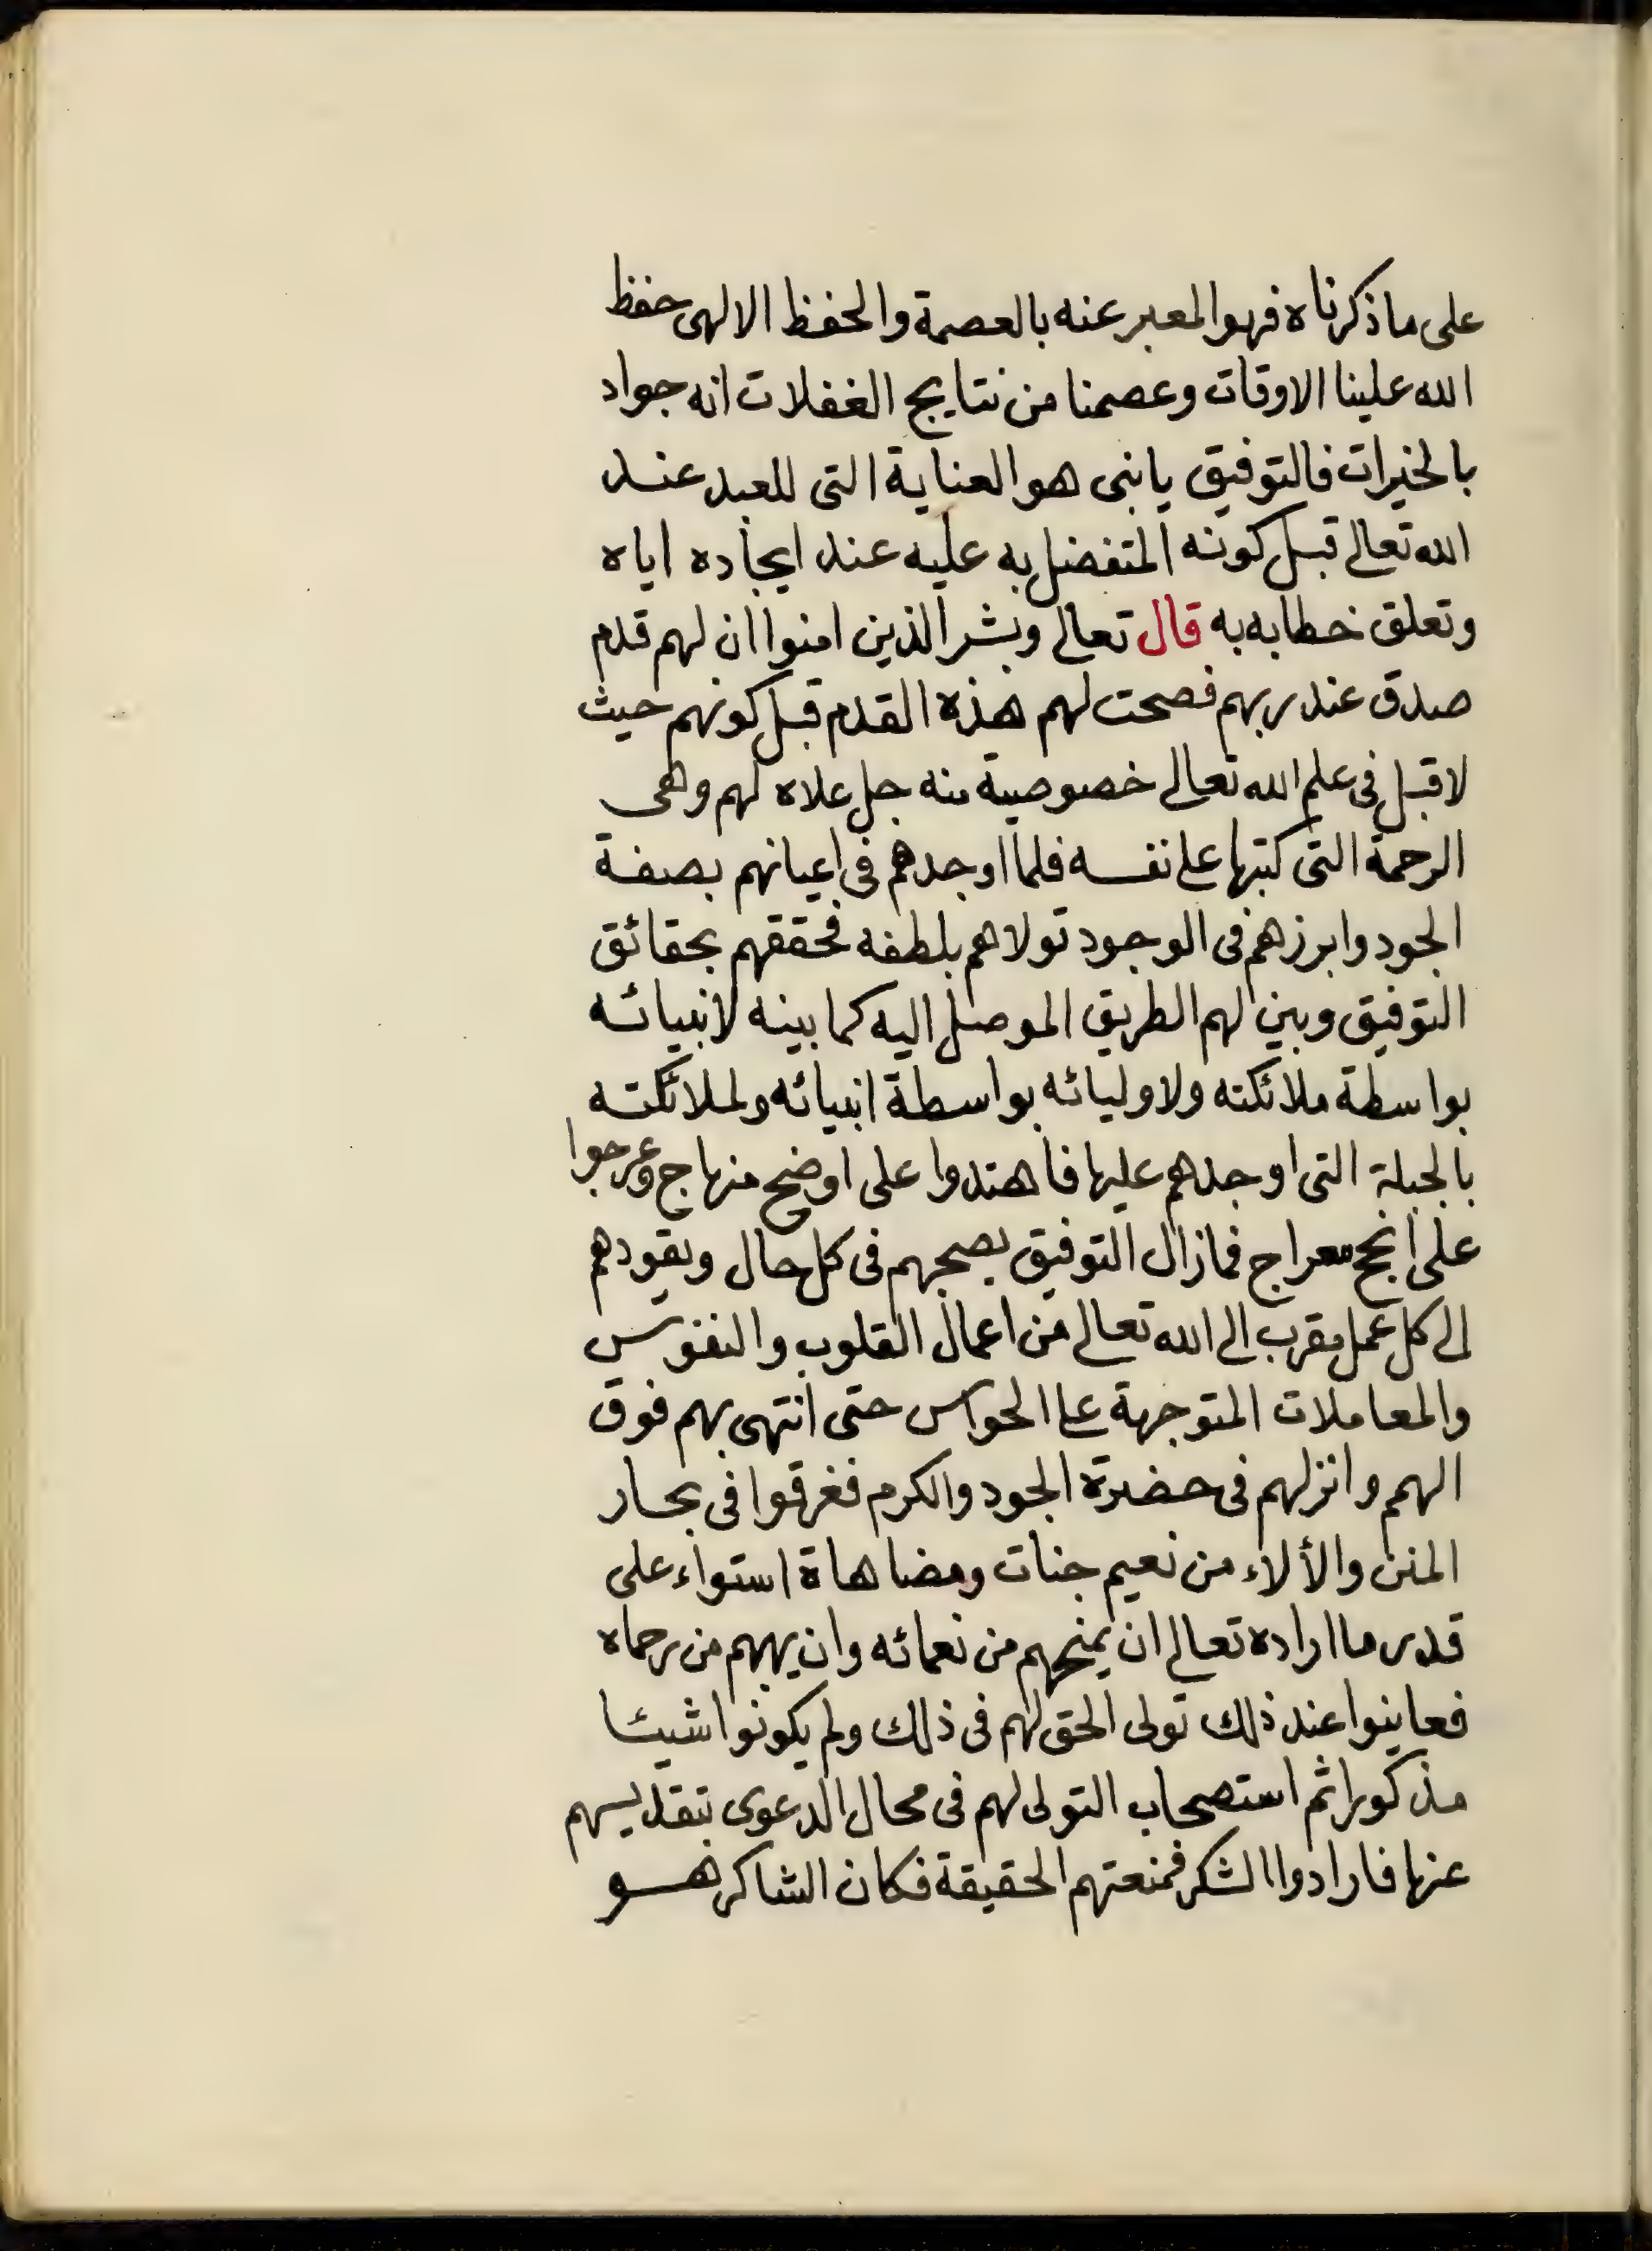 على ما ذكرناه فهو المعبر عنه بالعصمة والحفظ الالهى حفظ
الله علينا الاوقات وعصمنا من نتايج الغفلات انه جواد
بالخيرات فالتوفيق يا بنى هو العناية التى للعبد عند
الله تعالى قبل كونه المتفضل به عليه عند ايجاده اياه
وتعلق خطابه به قال تعالى وبشر الذين امنوا ان لهم قدم
صدق عند ربهم فصحت لهم هذه القدم قبل كونهم حيث
لا قبل فى علم الله تعالى خصوصية منه جل علاه لهم وهى
الرحمة التى كتبها على نفسه فلما اوجدهم فى اعيانهم بصفة
الجود وابرزهم فى الوجود تولاهم بلطفه فحققهم بحقائق
التوفيق وبين لهم الطريق الموصل اليه كما بينه لانبيائه
بواسطة ملائكته ولاوليائه بواسطة انبيائه ولملائكته
بالجبلة التى اوجدهم عليها فاهتدوا على اوضح منهاج وعرجوا
على انجح معراج فما زال التوفيق يصحبهم فى كل حال ويقودهم
الى كل عمل مقرب الى الله تعالى من اعمال القلوب والنفوس
والمعاملات المتوجهة على الحواس حتى انتهى بهم فوق
الهمم وانزلهم فى حضرة الجود والكرم فغرقوا فى بحار
المنن والألاء من نعيم جنات ومضاهاة استواء على
قدر ما اراده تعالى ان يمنحهم من نعمائه وان يهبهم من رحماه
فعاينوا عند ذلك تولى الحق لهم فى ذلك ولم يكونوا شيئا
مذكورا ثم استصحاب التولى لهم فى محال الدعوى بتقديسهم
عنها فارادوا الشكر فمنعتهم الحقيقة فكان الشاكر هو